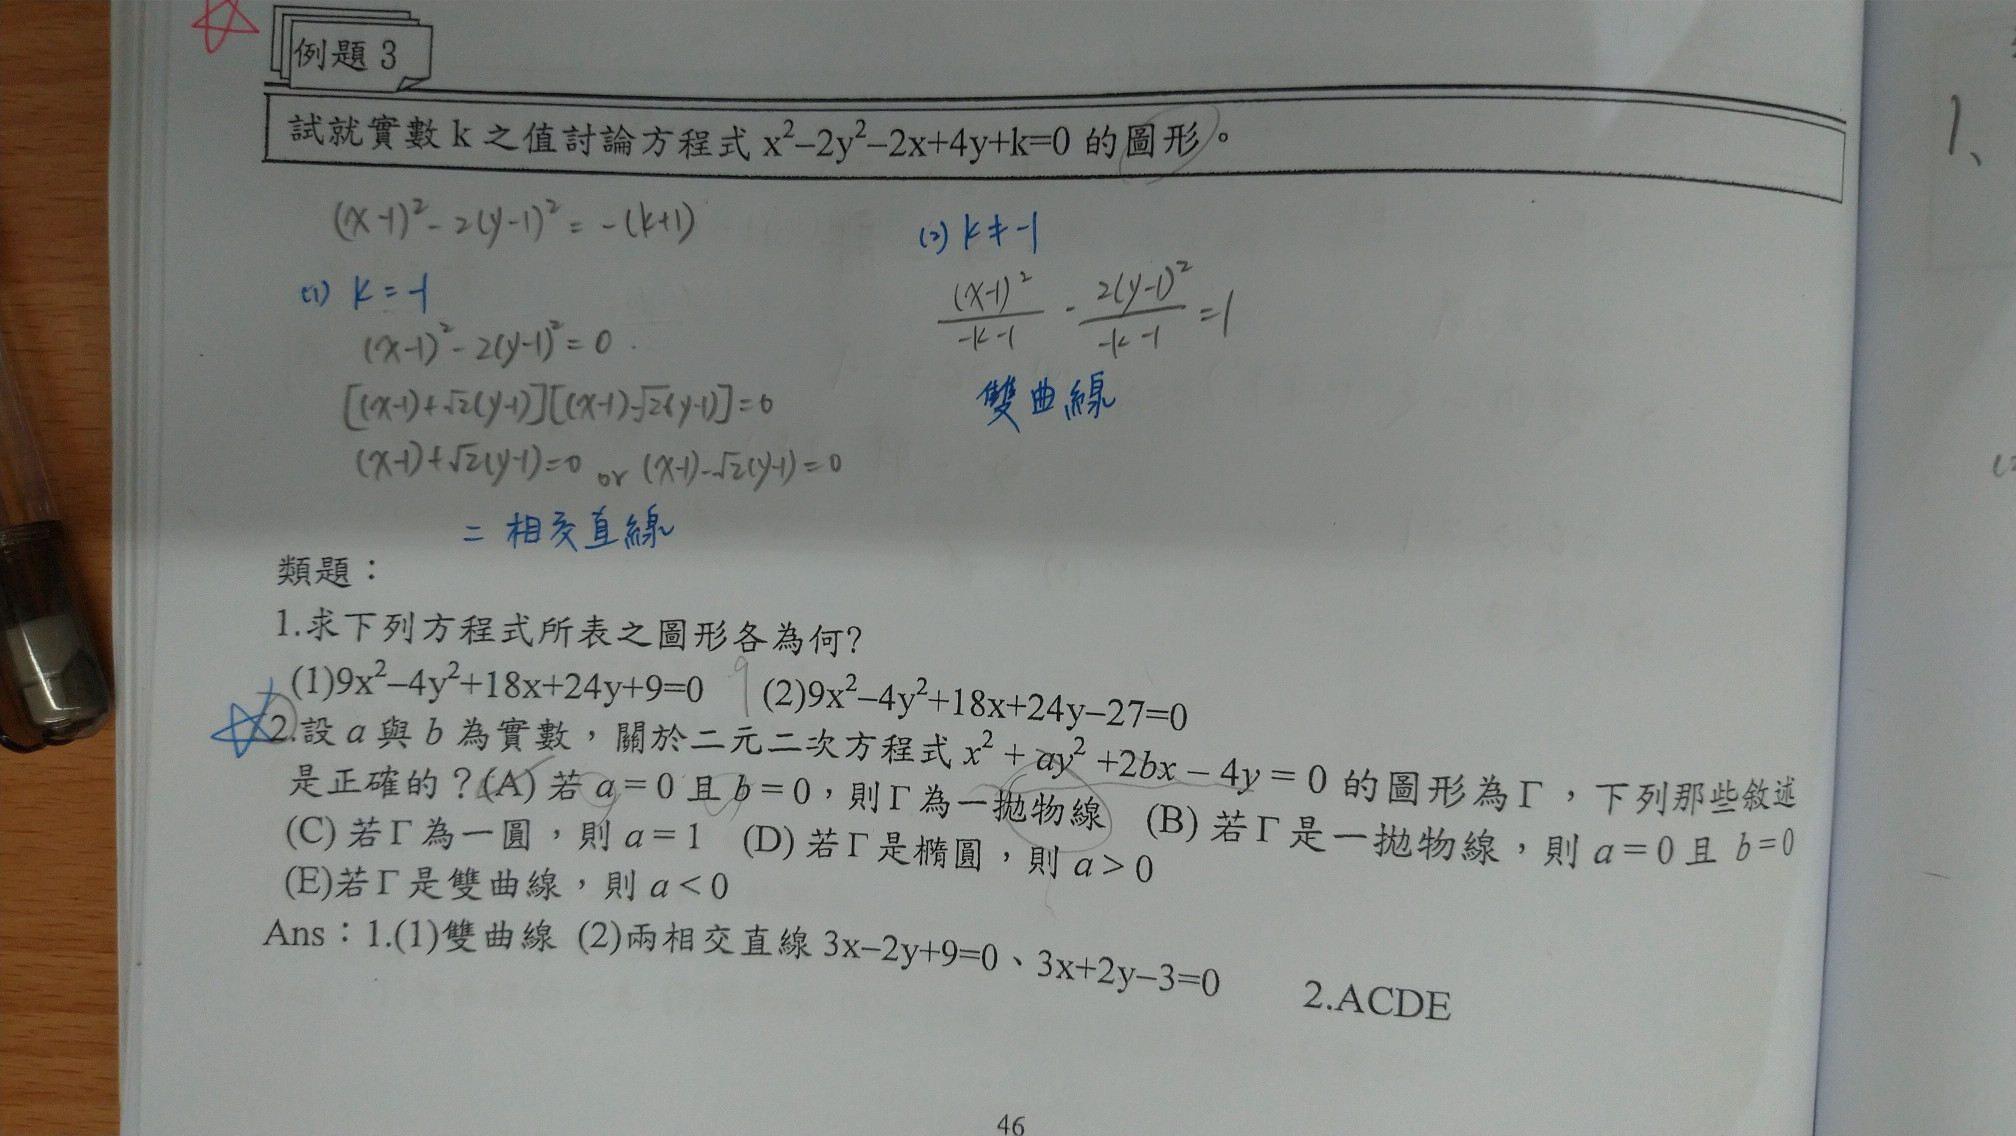 例題 3
試就實數 k 之值討論方程式 x²–2y²–2x+4y+k=0 的圖形。
(x-1)² - 2(y-1)² = -(k+1)
(1) k = -1
(x-1)² - 2(y-1)² = 0
[(x-1)+√2(y-1)][(x-1)-√2(y-1)]=0
(x-1)+√2(y-1)=0 or (x-1)-√2(y-1)=0
二相交直線
(2) k ≠ -1
(x-1)²/-k-1 - 2(y-1)²/-k-1 = 1
雙曲線
類題：
1.求下列方程式所表之圖形各為何?
(1)9x²–4y²+18x+24y+9=0 (2)9x²–4y²+18x+24y–27=0
2.設 a 與 b 為實數，關於二元二次方程式 x² + ay² +2bx – 4y = 0 的圖形為 Γ，下列那些敘述
是正確的？(A) 若 a = 0 且 b = 0，則 Γ 為一拋物線 (B) 若 Γ 是一拋物線，則 a = 0 且 b=0
(C) 若 Γ 為一圓，則 a = 1 (D) 若 Γ 是橢圓，則 a > 0
(E)若 Γ 是雙曲線，則 a < 0
Ans：1.(1)雙曲線 (2)兩相交直線 3x–2y+9=0、3x+2y–3=0 2.ACDE
46
1、